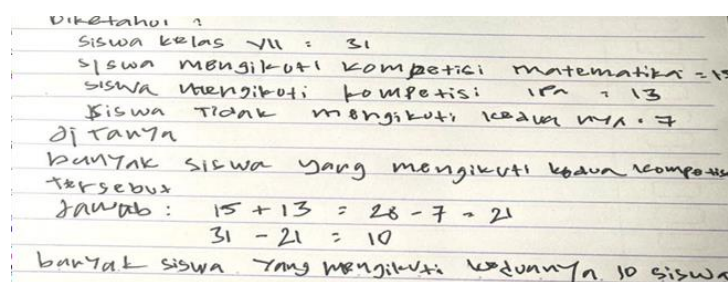 Diketahui :
siswa kelas VII : 31
siswa mengikuti kompetisi matematika = 15
siswa mengikuti kompetisi IPA : 13
siswa Tidak mengikuti keduanya . 7
di Tanya
banyak siswa yang mengikuti kedua kompetisi
tersebut
Jawab : 15 + 13 = 28 - 7 = 21
31 - 21 = 10
banyak siswa yang mengikuti keduannya 10 siswa